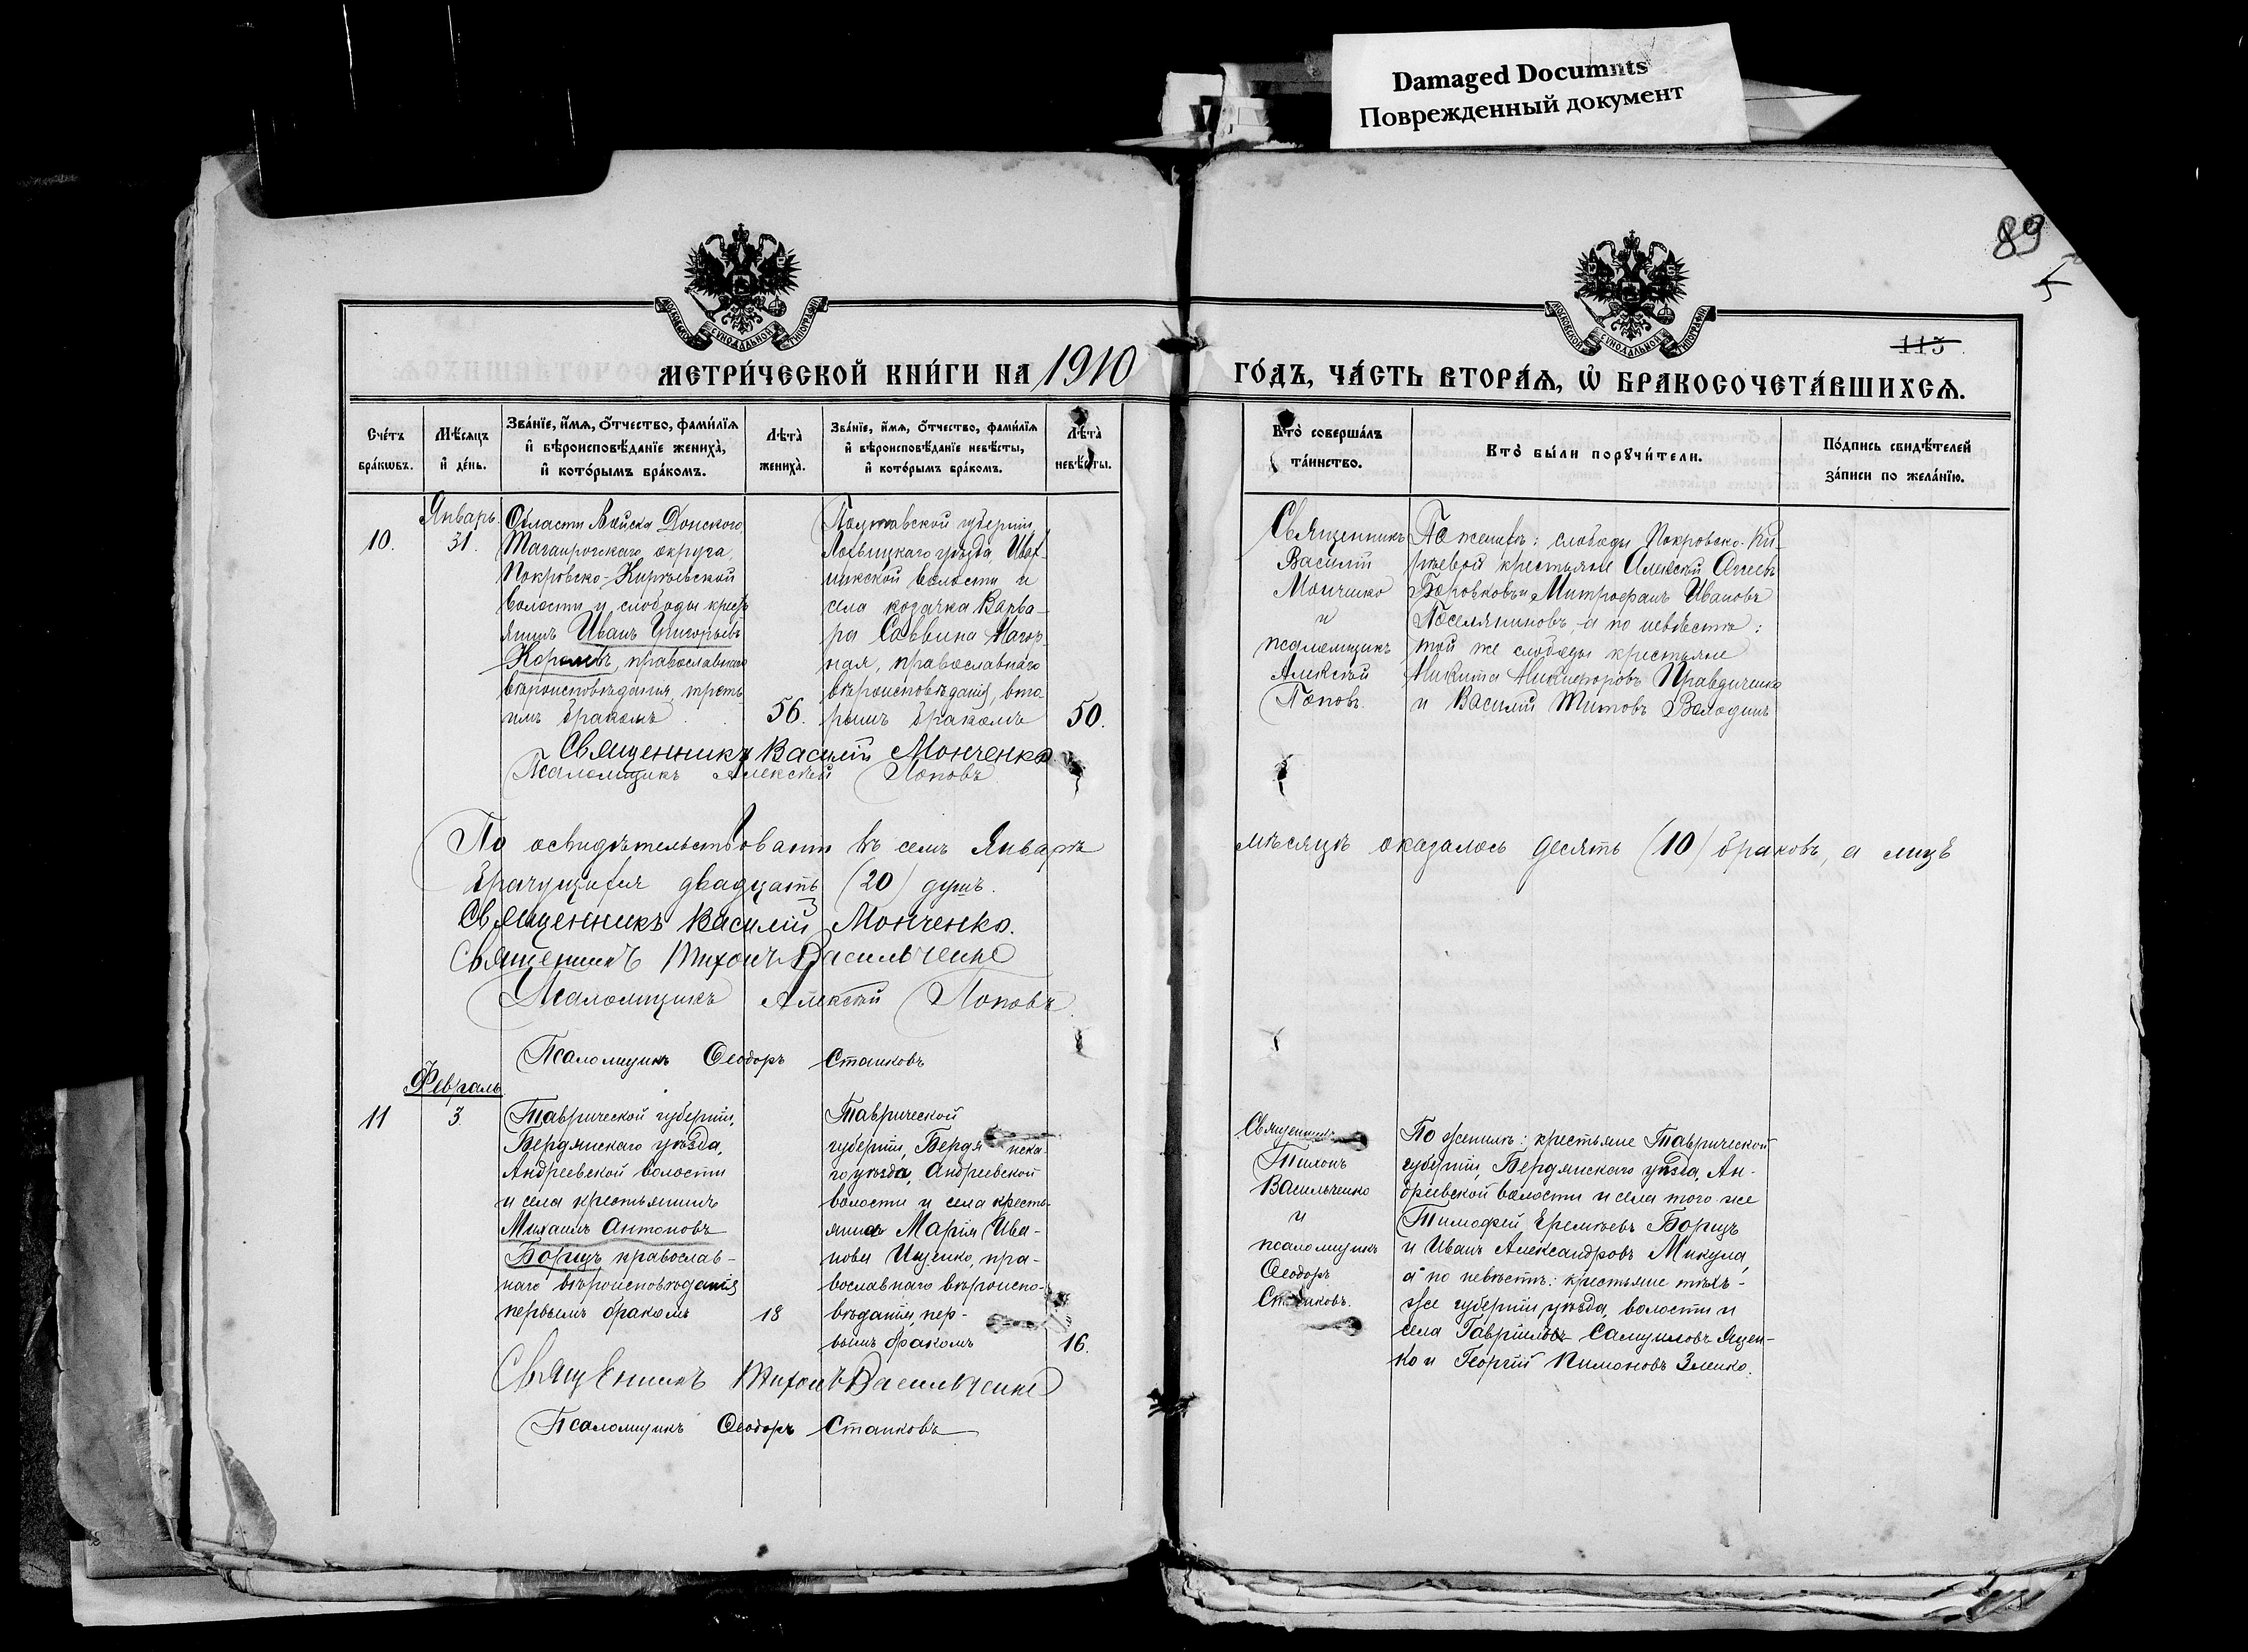 Damaged Documnts
Поврежденный документ
89
115
МЕТРИ́ЧЕСКОЙ КНИ́ГИ НА 1910
ГО́ДЪ, ЧА́СТЬ ВТОРА́Ѧ, Ѡ҆ БРАКОСОЧЕТА́ВШИХСѦ.
Сче́тъ
бра́кѡвъ.
Мѣ́сѧцъ
и҆ де́нь.
Зва́нїе, и҆́мѧ, ѻ҆́тчество, фами́лїѧ
и҆ вѣроисповѣ́данїе жениха̀,
и҆ кото́рымъ бра́комъ.
Лѣта̀
жениха̀.
Зва́нїе, и҆́мѧ, ѻ҆́тчество, фами́лїѧ
и҆ вѣроисповѣ́данїе невѣ́сты,
и҆ кото́рымъ бра́комъ.
Лѣта̀
невѣ́сты.
Кто̀ соверша́лъ
та́инство.
Кто̀ бы́ли порꙋчи́тели.
По́дпись свидѣ́телей
за́писи по жела́нїю.
10.
Январь.
31.
Области Войска Донского
Таганрогскаго округа,
Покровско-Кирѣевской
волости и слободы крест
янинъ Иванъ Григорьевъ
Королевъ, православнаго
вѣроисповѣданія, треть
имъ бракомъ
56.
Полтавской губерніи,
Лохвицкаго уѣзда,
волости и
села козачка Варва-
ра Саввина
ная, православнаго
вѣроисповѣданія, вто-
рымъ бракомъ
50.
Священникъ
Василій
Мончинко
и
псаломщикъ
Алексѣй
Поповъ.
По женихѣ: слободы Покровско-Ки-
рѣевой крестьяне Алексѣй
Боровковъ и Митрофанъ Ивановъ
Поселяниковъ, а по невѣстѣ:
той же слободы крестьяне
Никита Никифоровъ Правдиченко
и Василій Титовъ Володинъ
Священникъ Василій Монченко
Псаломщикъ Алексѣй Поповъ
По освидѣтельствованіи въ семъ Январѣ
мѣсяцѣ оказалось десять (10) браковъ, а лицъ
брачущихся двадцать (20) душъ.
Священникъ Василій Монченко.
Священникъ Тихонъ Васильченко
Псаломщикъ Алексѣй Поповъ.
Псаломщикъ Ѳеодоръ Станковъ
Февраль
11
3.
Таврической губерніи,
Бердянскаго уѣзда,
Андреевской волости
и села крестьянинъ
Михаилъ Антоновъ
Борщъ православ-
наго вѣроисповѣданія
первымъ бракомъ
18
Таврической
губерніи, Бердянска-
го уѣзда, Андреевской
волости и села кресть-
янка Марія Ива-
нова Ищенко, пра-
вославнаго вѣроиспо-
вѣданія, пер-
вымъ бракомъ
16.
Священникъ
Тихонъ
Васильченко
и
псаломщикъ
Ѳеодоръ
Станковъ.
По женихѣ: крестьяне Таврической
губерніи, Бердянскаго уѣзда, Ан-
дреевской волости и села того же
Тимофей Еремѣевъ Борщъ
и Иванъ Александровъ Микула,
а по невѣстѣ: крестьяне тѣхъ-
же губерніи, уѣзда, волости и
села Гавріилъ Самуиловъ Яцен-
ко и Георгій Пимоновъ Зленко.
Священникъ Тихонъ Васильченко
Псаломщикъ Ѳеодоръ Станковъ